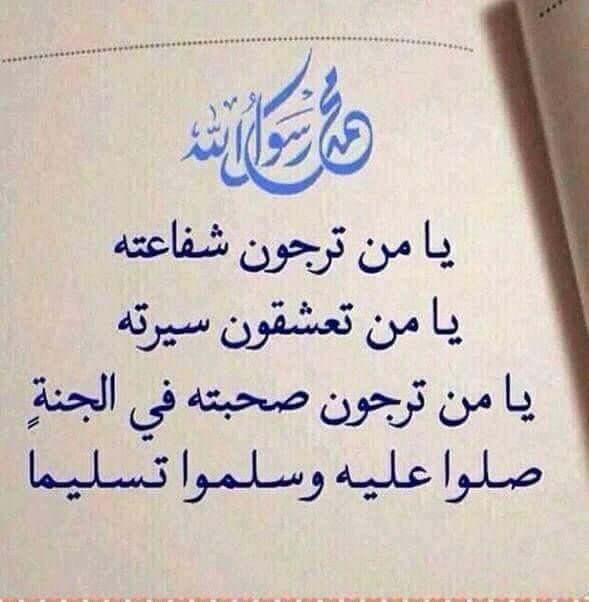 محمد رسول الله
يا من ترجون شفاعته
يا من تعشقون سيرته
يا من ترجون صحبته في الجنةٍ
صلوا عليه وسلموا تسليما